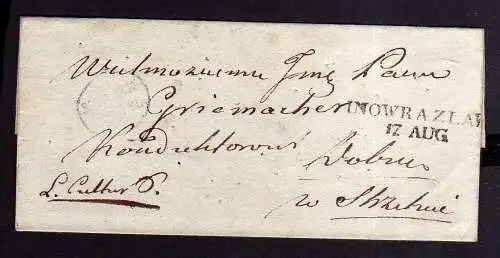 Wielmożnemu Jmć Panu
Griemacher
INOWRAZLAW
17 AUG
Konduktorowi Dobru
w Strzelnie